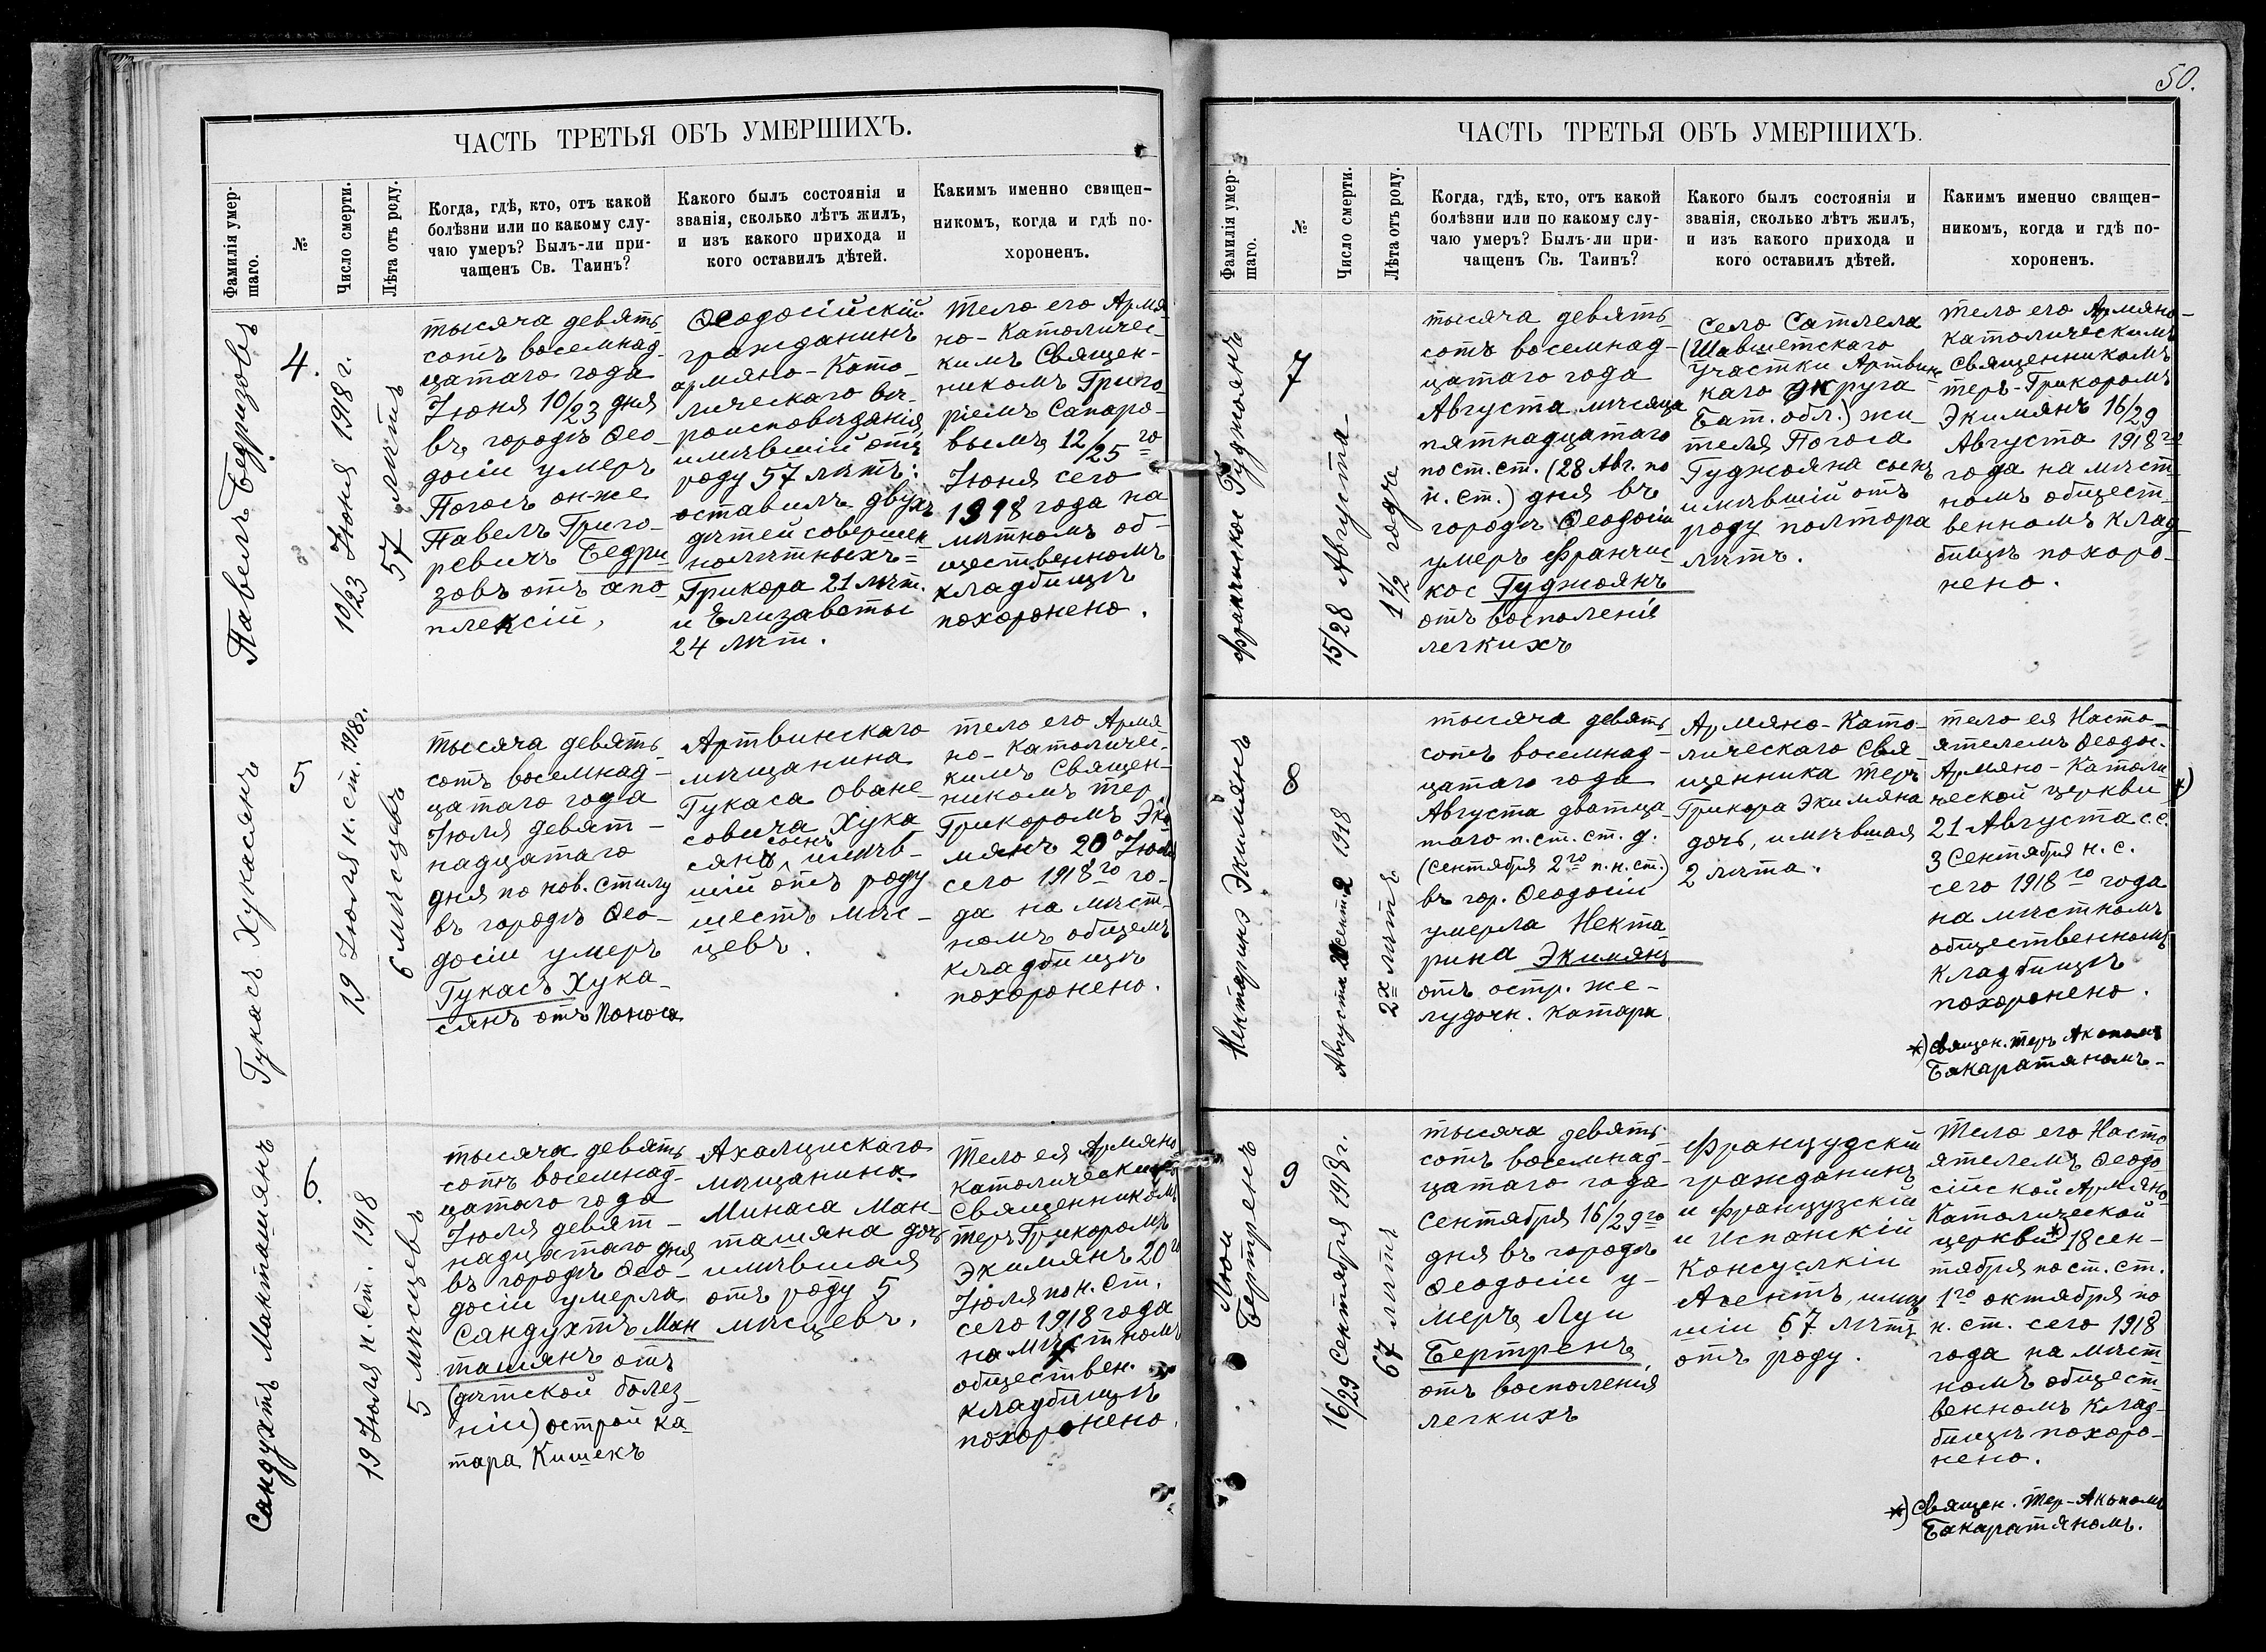 50.
ЧАСТЬ ТРЕТЬЯ ОБЪ УМЕРШИХЪ.
Фамилія умер-
шаго.
№
Число смерти.
Лѣта отъ роду.
Когда, гдѣ, кто, отъ какой
болѣзни или по какому слу-
чаю умеръ? Былъ-ли при-
чащенъ Св. Таинъ?
Какого былъ состоянія и
званія, сколько лѣтъ жилъ,
и изъ какого прихода и
кого оставилъ дѣтей.
Какимъ именно священ-
никомъ, когда и гдѣ по-
хороненъ.
Павелъ Бедризовъ
4.
10/23 Іюня 1918 г.
57 лѣтъ
тысяча девять
сотъ восемнад-
цатаго года
Іюня 10/23 дня
въ городѣ Ѳео-
досіи умеръ
Погосъ он-же
Павелъ Григо-
ревичъ Бедри
зовъ отъ апо
плексіи,
Ѳеодосійскій
гражданинъ
армяно-Като-
лическаго вѣ-
роисповѣданія,
имѣвшій отъ
роду 57 лѣтъ:
оставилъ двухъ
дѣтей совершен
нолѣтныхъ=
Грикора 21 лѣт.
и Елизаветы
24 лѣт.
Тело его Армя
но-Католичес-
кимъ Священ-
никомъ Григо
ріемъ Сапаро-
вымъ 12/25 го
Іюня сего
1918 года на
мѣтномъ об-
щественномъ
кладбищѣ
похоронено.
Гукасъ Хукасянъ
5
19 Іюля н. ст. 1918г.
6 мѣсцевъ
тысяча девять
сотъ восемнад-
цатаго года
Іюля девят-
надцатаго
дня по нов. стилу
въ городѣ Ѳео-
досіи умеръ
Гукасъ Хука-
сянъ отъ поноса
Артвинскаго
мѣщанина
Гукаса Оване-
совича Хука
сынъ
сяна, имѣв-
шій отъ роду
шесть мѣс-
цевъ.
тело его Армя
но-Католичес-
кимъ Священ-
никомъ тер
Грикоромъ Эки
мянъ 20 о Іюля
сего 1918 го го-
да на мѣст-
номъ общемъ
кладбищѣ
похоронено.
Сандухтъ Манташянъ
6.
19 Іюля н. ст. 1918
5 мѣсцевъ
тысяча девять
сотъ восемнад-
цатаго года
Іюля девят-
надцатаго дня
въ городѣ Ѳео-
досіи умерла
Сандухтъ Ман
ташянъ отъ
(дѣтской болез-
ніи) острой ка-
тара Кишекъ
Ахалцискаго
мѣщанина
Минаса Ман-
ташяна дочъ
имѣвшая
отъ роду 5
мѣсцевъ.
Тело ея Армяно
католическимъ
Священникомъ
теръ Грикоромъ
Экимянъ 20 го
Іюля по н. ст.
сего 1918 года
на мѣстномъ
обществен.
кладбищѣ
похоронено.
ЧАСТЬ ТРЕТЬЯ ОБЪ УМЕРШИХЪ.
Фамилія умер-
шаго.
№
Число смерти.
Лѣта отъ роду.
Когда, гдѣ, кто, отъ какой
болѣзни или по какому слу-
чаю умеръ? Былъ-ли при-
чащенъ Св. Таинъ?
Какого былъ состоянія и
званія, сколько лѣтъ жилъ,
и изъ какого прихода и
кого оставилъ дѣтей.
Какимъ именно священ-
никомъ, когда и гдѣ по-
хороненъ.
Франчискос Гуджоянъ
7
15/28 Августа
1 1/2 года
тысяча девять
сотъ восемнад-
цатаго года
Августа мѣсяца
пятнадцатаго
по ст. ст. (28 Авг. по
н. ст.) дня въ
городѣ Ѳеодосіи
умеръ Франчис
кос Гуджоянъ
отъ восполенія
легкихъ
Село Сатлела
(Шавшетскаго
участки Артвин-
каго округа
Бат. обл.) жи-
теля Погоса
Гуджояна сынъ
имѣвшій отъ
роду полтора
лѣтъ.
тело его Армяно-
католическимъ
священникомъ
теръ-Грикоромъ
Экимянъ 16/29
Августа 1918 го
года на мѣст-
номъ общест-
венномъ клад-
бищѣ похоро-
нено.
Нектарина Экимянъ
8
Августа 20 сент. 2 1918
2х лѣтъ
тысяча девять
сотъ восемнад-
цатаго года
Августа двадца
таго п. ст. ст. д.
(сентября 2го п. н. ст.)
въ гор. Ѳеодосіи
умерла Некта
рина Экимянъ
отъ остр. же-
лудочн. катара
Армяно-Като-
лическаго Свя
щенника теръ
Грикора Экимяна
дочъ, имѣвшая
2 лѣта.
тело ея Насто-
ятелемъ Ѳеодос.
Армяно-Католи
ческой церкви *)
21 Августа с. с.
3 Сентября н. с.
сего 1918 го года
на мѣстномъ
общественномъ
кладбищѣ
похоронено.
*) Священ. теръ Акопомъ
Бакаратяномъ-
Люи
Бертренъ
9
16/29 Сентября 1918г.
67 лѣтъ
тысяча девять
сотъ восемнад-
цатаго года
Сентября 16/29 го
дня въ городѣ
Ѳеодосіи у-
меръ Луи
Бертренъ,
отъ восполенія
легкихъ
Французскій
гражданинъ
и французскій
и Испанскій
Консулкіи
Агентъ, имѣв
шіи 67 лѣтъ
отъ роду.
Тело его Насто
ятелемъ Ѳеодо
сійской Армяно
Католической
церкви*) 18 сен-
тября по ст. ст.
1го октября по
н. ст. сего 1918
года на мѣст
номъ общест-
венномъ клад-
бищѣ похоро-
нено.
*) Священ. Тер-Акопомъ
Бакаратяномъ.